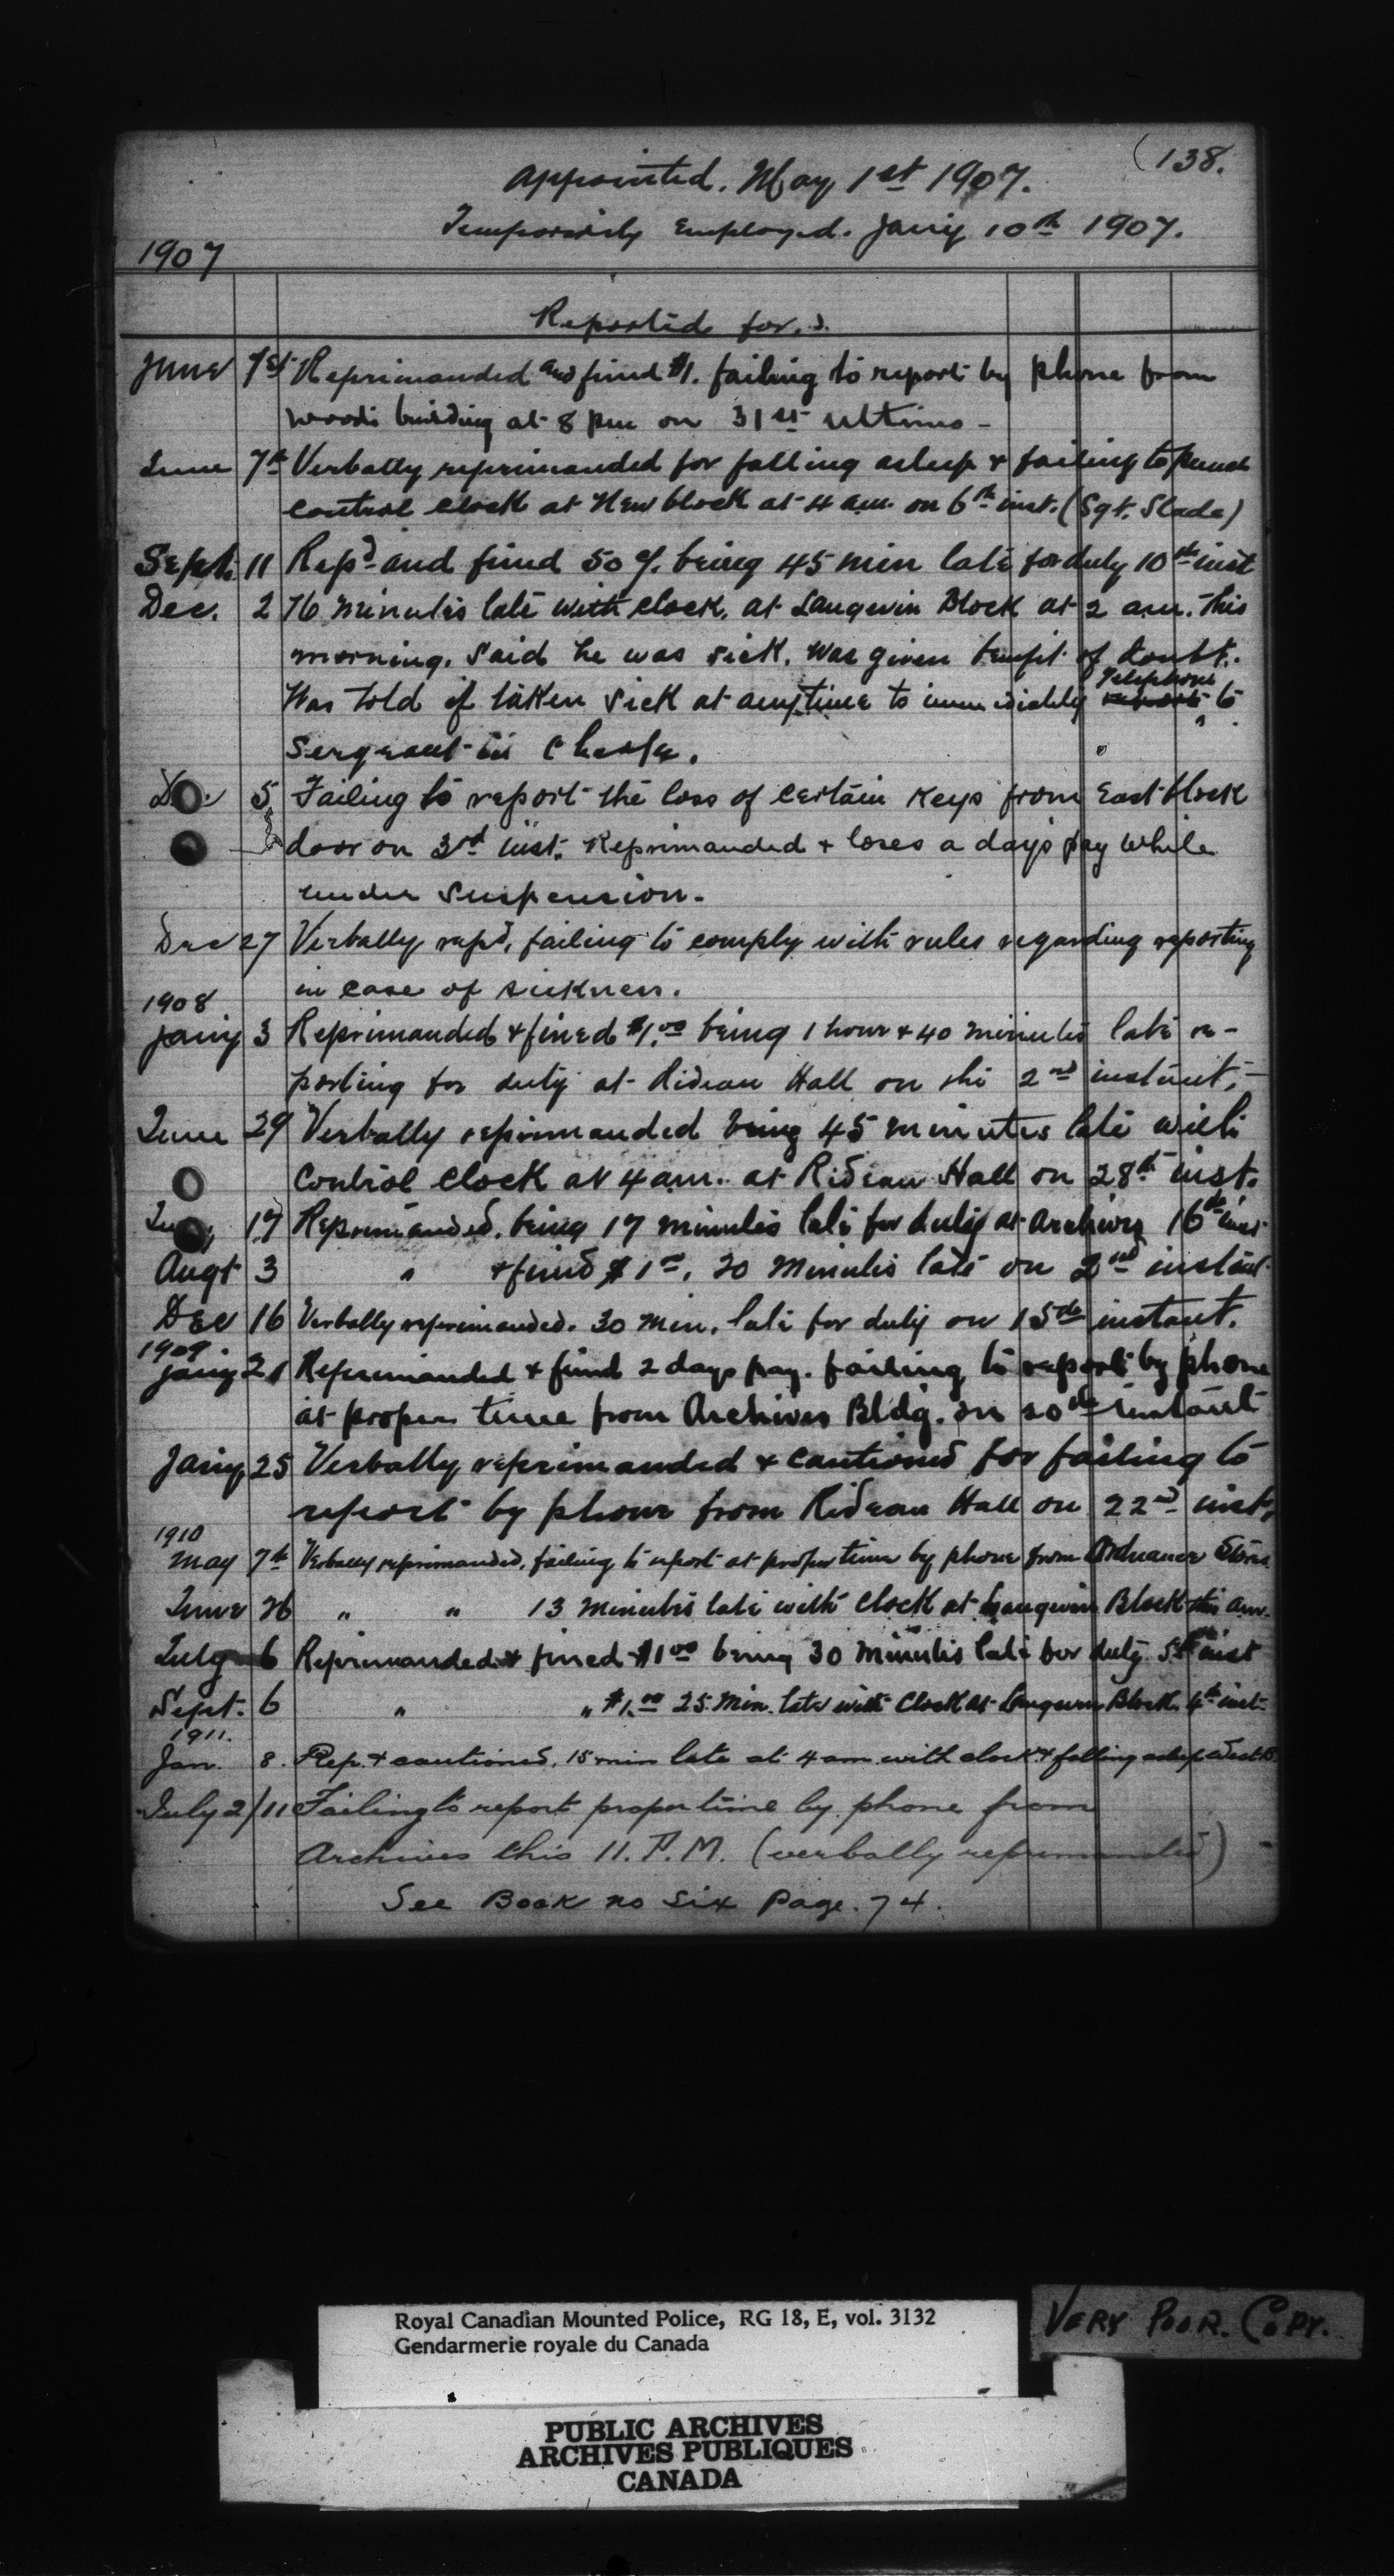 (138.
Appointed. May 1st 1907.
Temporarily Employed. Jan'y 10th 1907.
1907
Reported for.
June 1st Reprimanded and fined $1. failing to report by phone from
Woods building at 8 pm on 31st ultimo -
June 7th Verbally reprimanded for falling asleep & failing to punch
control clock at New block at 4 am. on 6th inst. (Sgt. Slade)
Sept. 11 Rep'd and fined 50¢. being 45 min late for duty 10th inst
Dec. 2 76 minutes late with clock, at Langevin Block at 2 am. this
morning. Said he was sick. Was given benefit of doubt.
Telephone
Was told if taken sick at anytime to immediately report to
Sergeant in Charge.
5 Failing to report the loss of certain Keys from East block
door on 3rd inst. Reprimanded & loses a day's pay while
under suspension.
Dec 27 Verbally rep'd, failing to comply with rules regarding reporting
in case of sickness.
1908
Jan'y 3 Reprimanded & fined $1.00 being 1 hour & 40 minutes late re-
porting for duty at Rideau Hall on the 2nd instant, -
June 29 Verbally reprimanded being 45 minutes late with
Control Clock at 4 am. at Rideau Hall on 28th inst.
17 Reprimanded. being 17 minutes late for duty at Archives 16th inst
Augt 3 " & fined $1.00, 20 Minutes late on 2nd instant
Dec 16 Verbally reprimanded. 30 Min. late for duty on 15th instant.
1909
Jan'y 21 Reprimanded & fined 2 days pay. failing to report by phone
at proper time from Archives Bldg. on 20th instant
Jan'y 25 Verbally reprimanded & cautioned for failing to
report by phone from Rideau Hall on 22nd inst.
1910
May 7th Verbally reprimanded, failing to report at proper time by phone from Ordnance Stores
June 26 " " 13 minutes late with clock at Langevin Block this am.
July 6 Reprimanded & fined $1.00 being 30 Minutes late for duty 5th inst
Sept. 6 " " $1.00 25 Min. late with Clock at Langevin Block 4th inst.
1911.
Jan. 8. Rep. & cautioned, 15 min late at 4 am with clock & falling asleep West B.
July 2/11 Failing to report proper time by phone from
Archives this 11. P.M. (verbally reprimanded)
See Book no six Page. 74.
Royal Canadian Mounted Police, RG 18, E, vol. 3132
Gendarmerie royale du Canada
VERY POOR. COPY.
PUBLIC ARCHIVES
ARCHIVES PUBLIQUES
CANADA